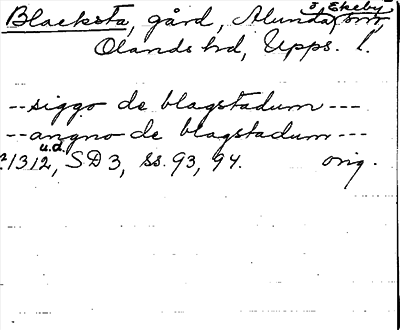 Blacksta, gård, Alunda (o. Ekeby) snr,
Olands hd, Upps. l.
-- siggo de blagstadum ---
-- angno de blagstadum ---
1312, u.d. SD 3, ss. 93, 94. orig.